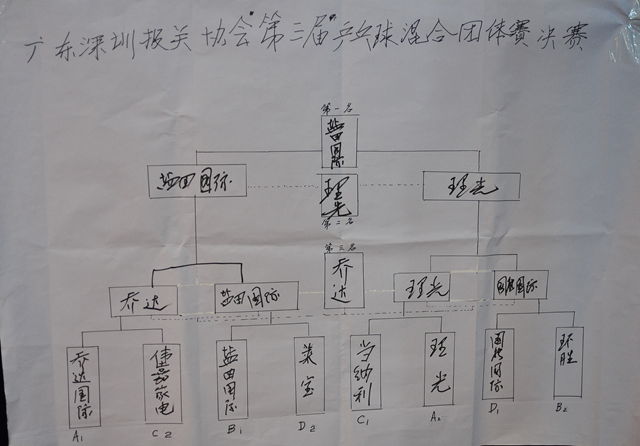 广东深圳报关协会"第三届"乒乓球混合团体赛决赛
第一名
盐田国际
盐田国际
理光
理光
第二名
第三名
乔达
乔达
盐田国际
理光
国际
乔达国际
佳嘉家电
盐田国际
莱宝
当纳利
理光
国际
环胜
A1
C2
B1
D2
C1
A2
D1
B2